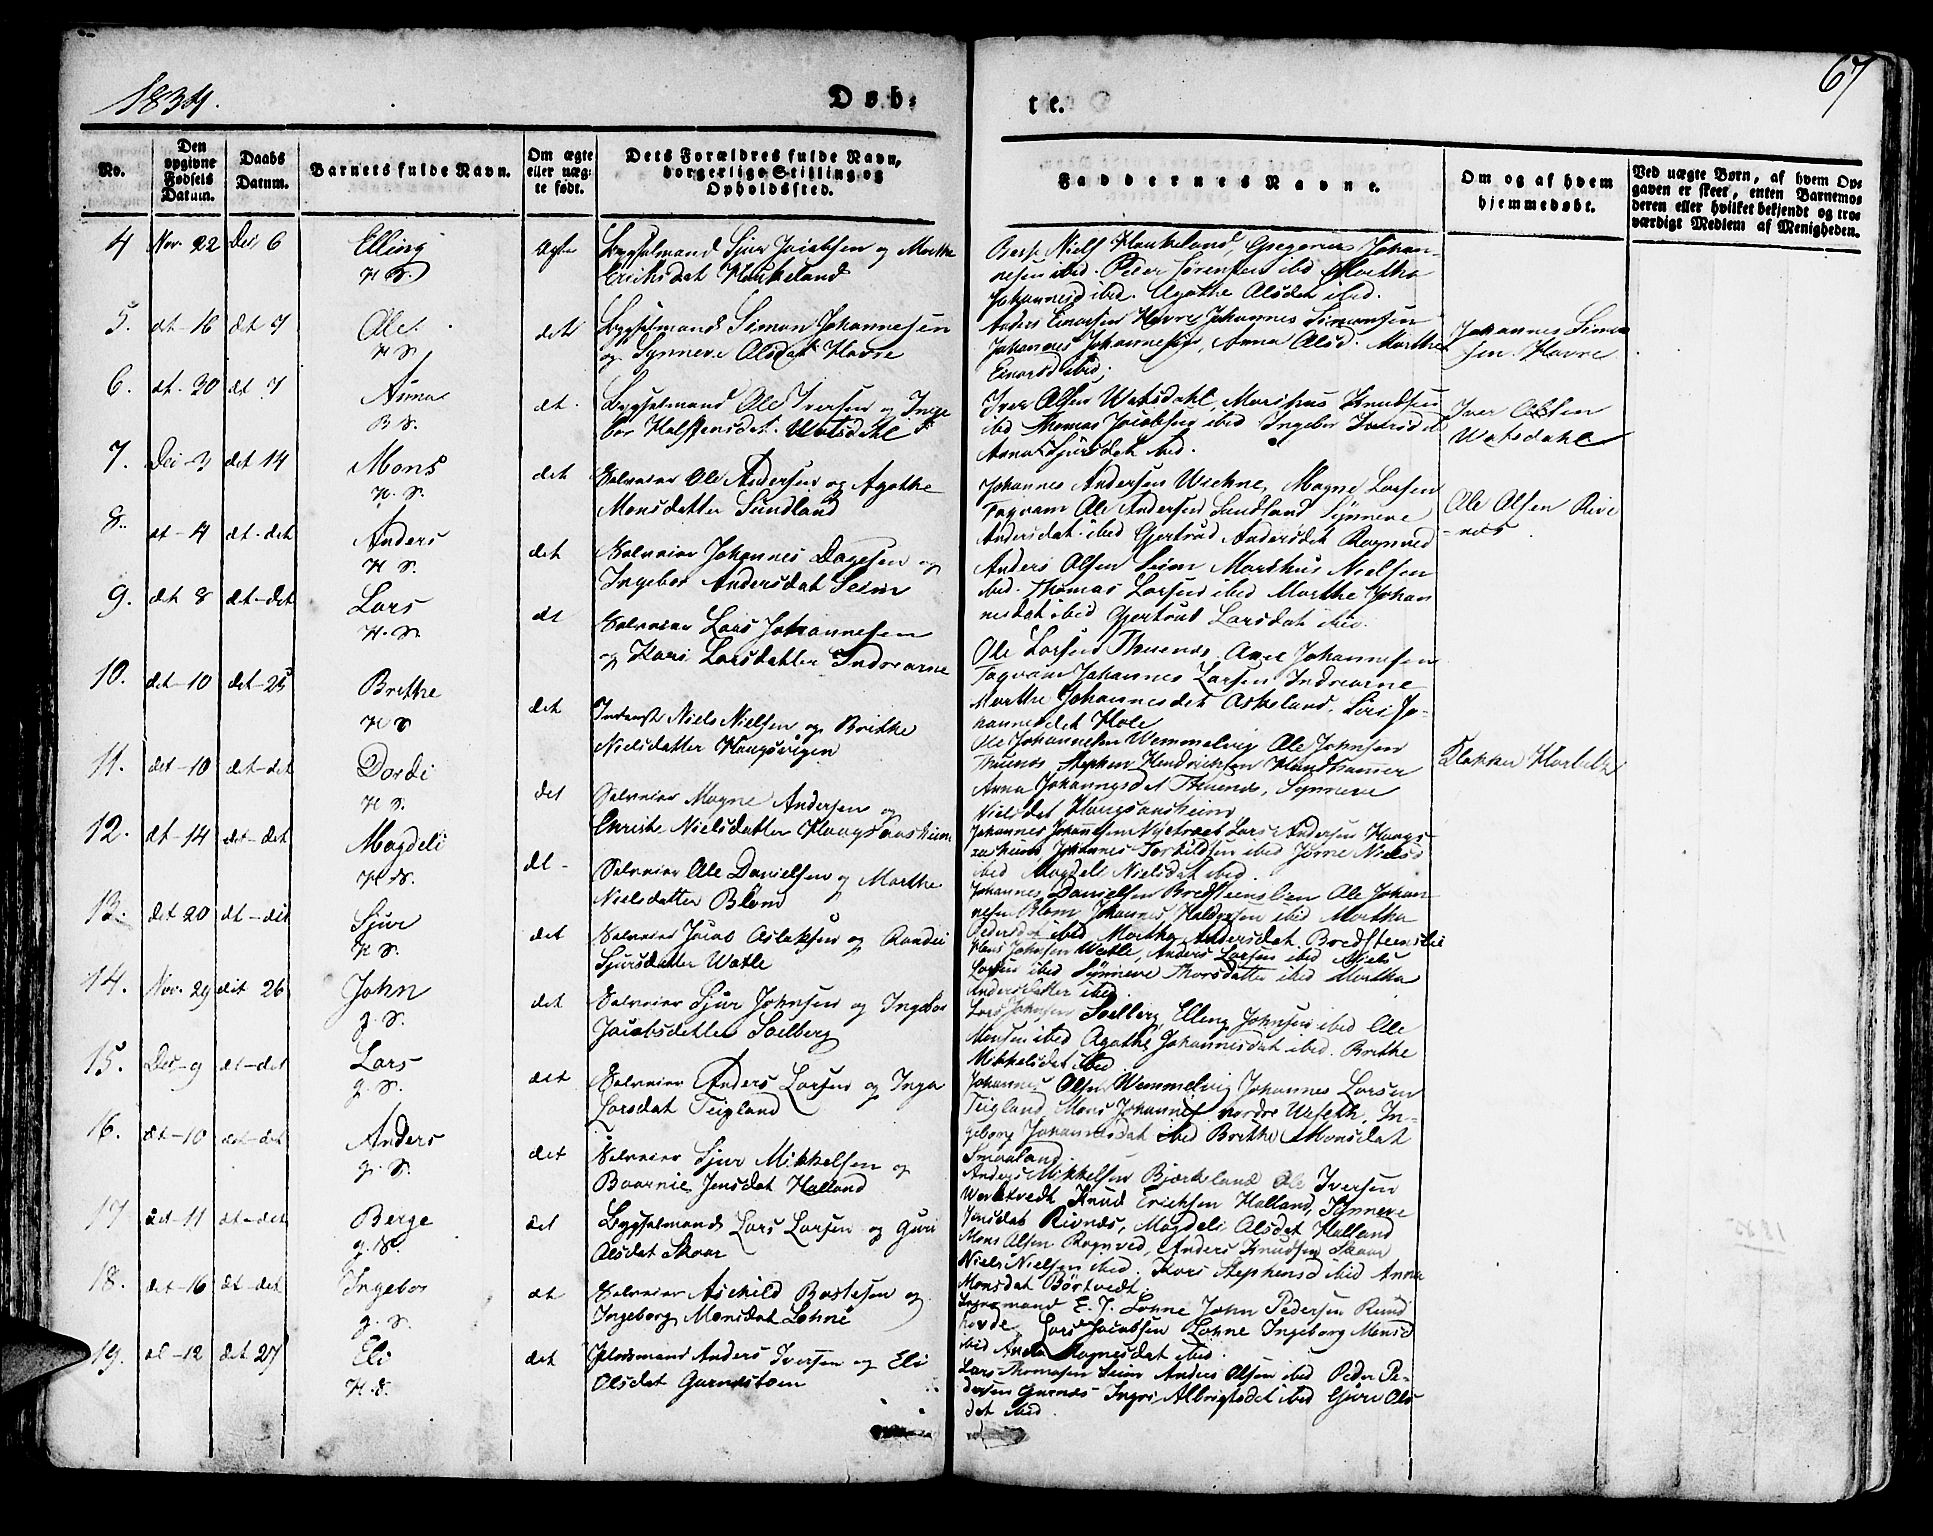 1834.
Døb-
te.
67
No.
Den opgivne Fødsels Datum.
Daabs Datum.
Barnets fulde Navn.
Om ægte eller uægte født.
Dets Forældres fulde Navn, borgerlige Stilling og Opholdssted.
Faddernes Navne.
Om og af hvem hjemmedøbt.
Ved uægte Børn, af hvem Opgaven er skeet, enten Barnemoderen eller hvilket bekjendt og troværdigt Medlem af Menigheden.
4 Nov. 22 Dec 6 Elling Ægte Bygselmand Sjur Jacobsen og Marthe
H. S. Ericksdat Haukeland
Niels Haukeland, Gregorius Johan-
nesen ibid. Peder Sørensen ibid Martha
Johannesd ibid. Agathe Olsdat ibid.
5. dt 16 dt 7 Ole det Bygselmand Simon Johannesen
H S. og Synneve Olsdat Havre
Anders Einarsen Havre Johannes Simonsen
Johannes Johannesen, Anna Olsd. Marthe
Einarsd ibid;
Johannes Simon
sen Havre
6. dt. 30 dt 7 Anna dt. Bygselmand Ole Iversen og Inge
bor Halstensdat. Watsdahl
Iver Olsen Watsdahl, Markus Knudsen
ibid Thomas Jacobsen ibid Ingebor Iversd
Anna Sjursdat ibid.
Iver Olsen
Watsdahl
7. Dec 3 det 14 Mons det Selveier Ole Andersen og Agathe
H. S. Monsdatter Sundland
Johannes Andersen Wichne, Magne Larsen
Ole Andersen Sundland Synneve
Andersdat ibid Gjertrud Andersdet Rognved
Ole Olsen Rive
-nes
8. dt 4 dt. det Anders det Selveier Johannes Dagesen og
H S. Ingebor Andersdat Seim
Anders Olsen Seim Markus Nielsen
ibid. Thomas Larsen ibid Marthe Johan
nesdat ibid Gjertrud Larsdat ibid.
9. det 8 dt-det Lars dt Selveier Lars Johannesen
H. S. og Kari Larsdatter Indrearne
Ole Larsen Thuenes, Johannesen
Johannes Larsen Indrearne
Marthe Johannesdet Askeland. Siri Jo-
hannesdet Hole
10. det 10 det 25 Brithe det Niels Nielsen og Brithe
H S Nielsdatter Haugsvigen
Ole Johannesen Wemmelvig Ole Johnsen
Thuenes Stephen Hendricksen
Anna Johannesdet Thuenes, Synneve
Nielsdet
Klokker
11. det 10 det-det Dordi det Selveier Magne Andersen og
H S. Christe Nielsdatter
Johannes Johannesen Lars Andersen Haugs-
Johannes Torkildsen ibid Nielsd
ibid Magdeli Nielsdat ibid.
12. dt-14 det-det Magdeli dt Selveier Ole Danielsen og Marthe
H. S. Nielsdatter Blom
Johannes Danielsen Bredsteenslien Ole Johan-
nesen Blom Johannes ibid Martha
Pedersdat ibid Martha Andersdat Bredsteenslie
13. det 20 dt-dit Sjur det Selveier Jacob Aslaksen og Randi
H S. Sjursdatter Watle
Johnsen Watle, Anders Larsen ibid Niels
Larsen ibid Synneve Thorsdatter ibid Martha
Andersdatter ibid
14. Nov. 29 det 26 John det Selveier Sjur Johnsen og Ingebor
g. S. Jacobsdetter Solberg
Lars Johnsen Solberg Elling Johnsen ibid Ole
Monsen ibid Agathe Johannesdat ibid. Brithe
Mikkelsdet ibid
15. Dec 9 dt-det Lars det Selveier Anders Larsen og Inga
g. S. Larsdat Teigland
Johannes Olsen Wemmelvig Johannes Larsen
Teigland Mons Johannes nordre In-
geborg Johannesdat ibid Brithe Monsdat
Smaaland
16. dt-10 det-det Anders det Selveier Sjur Mikkelsen og
g. S. Jensdat Halland
Anders Mikkelsen Bjørkeland Ole Iversen
Knud Ericksen Halland, Synneve
Jensdat Rivnæs, Magdeli Olsdat Halland
17 det-11 dt-det Berge det Bygselmand Lars Larsen og Guri
g. S. Olsdat Skaar
Mons Olsen Rognved, Anders Knudsen Skaar
Niels Nielsen ibid. Kari Stephensd ibid Anna
Monsdat Børtvedt
18. dt-16 dt-det Ingebor dt Selveier Askild Bostesen og
g. S. Ingeborg Monsdat Lohne
E. J. Lohne John Pedersen Rund
hovde, Lars Jacobsen Lohne Ingeborg Monsd
ibid Anna Magnesdat ibid.
19. dt-12 det 27 Eli det Anders Iversen og Eli
H. S. Olsdat Garnæstøen
Lars Thomasen Seim Anders Olsen ibid Peder Pe-
dersen Garnæs Ingri Albrigtsdet ibid Guri Ols
dat ibid.